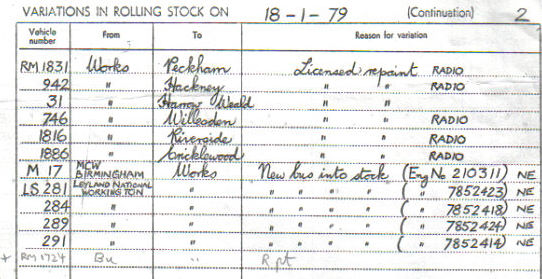 VARIATIONS IN ROLLING STOCK ON 18-1-79 (Continuation) 2
Vehicle number From To Reason for variation
RM 1831 Works Peckham Licensed repaint RADIO
942 " Hackney " " RADIO
31 " Harrow Weald " "
746 " Willesden " " RADIO
1816 " Riverside " " RADIO
1886 " Cricklewood " " RADIO
M 17 MCW BIRMINGHAM Works New bus into stock (Eng No 210311) NE
LS 281 LEYLAND NATIONAL WORKINGTON " " " " " ( " 7852423) NE
284 " " " " " " ( " 7852418) NE
289 " " " " " " ( " 7852424) NE
291 " " " " " " ( " 7852414) NE
+ RM 1724 Bu " Rpt